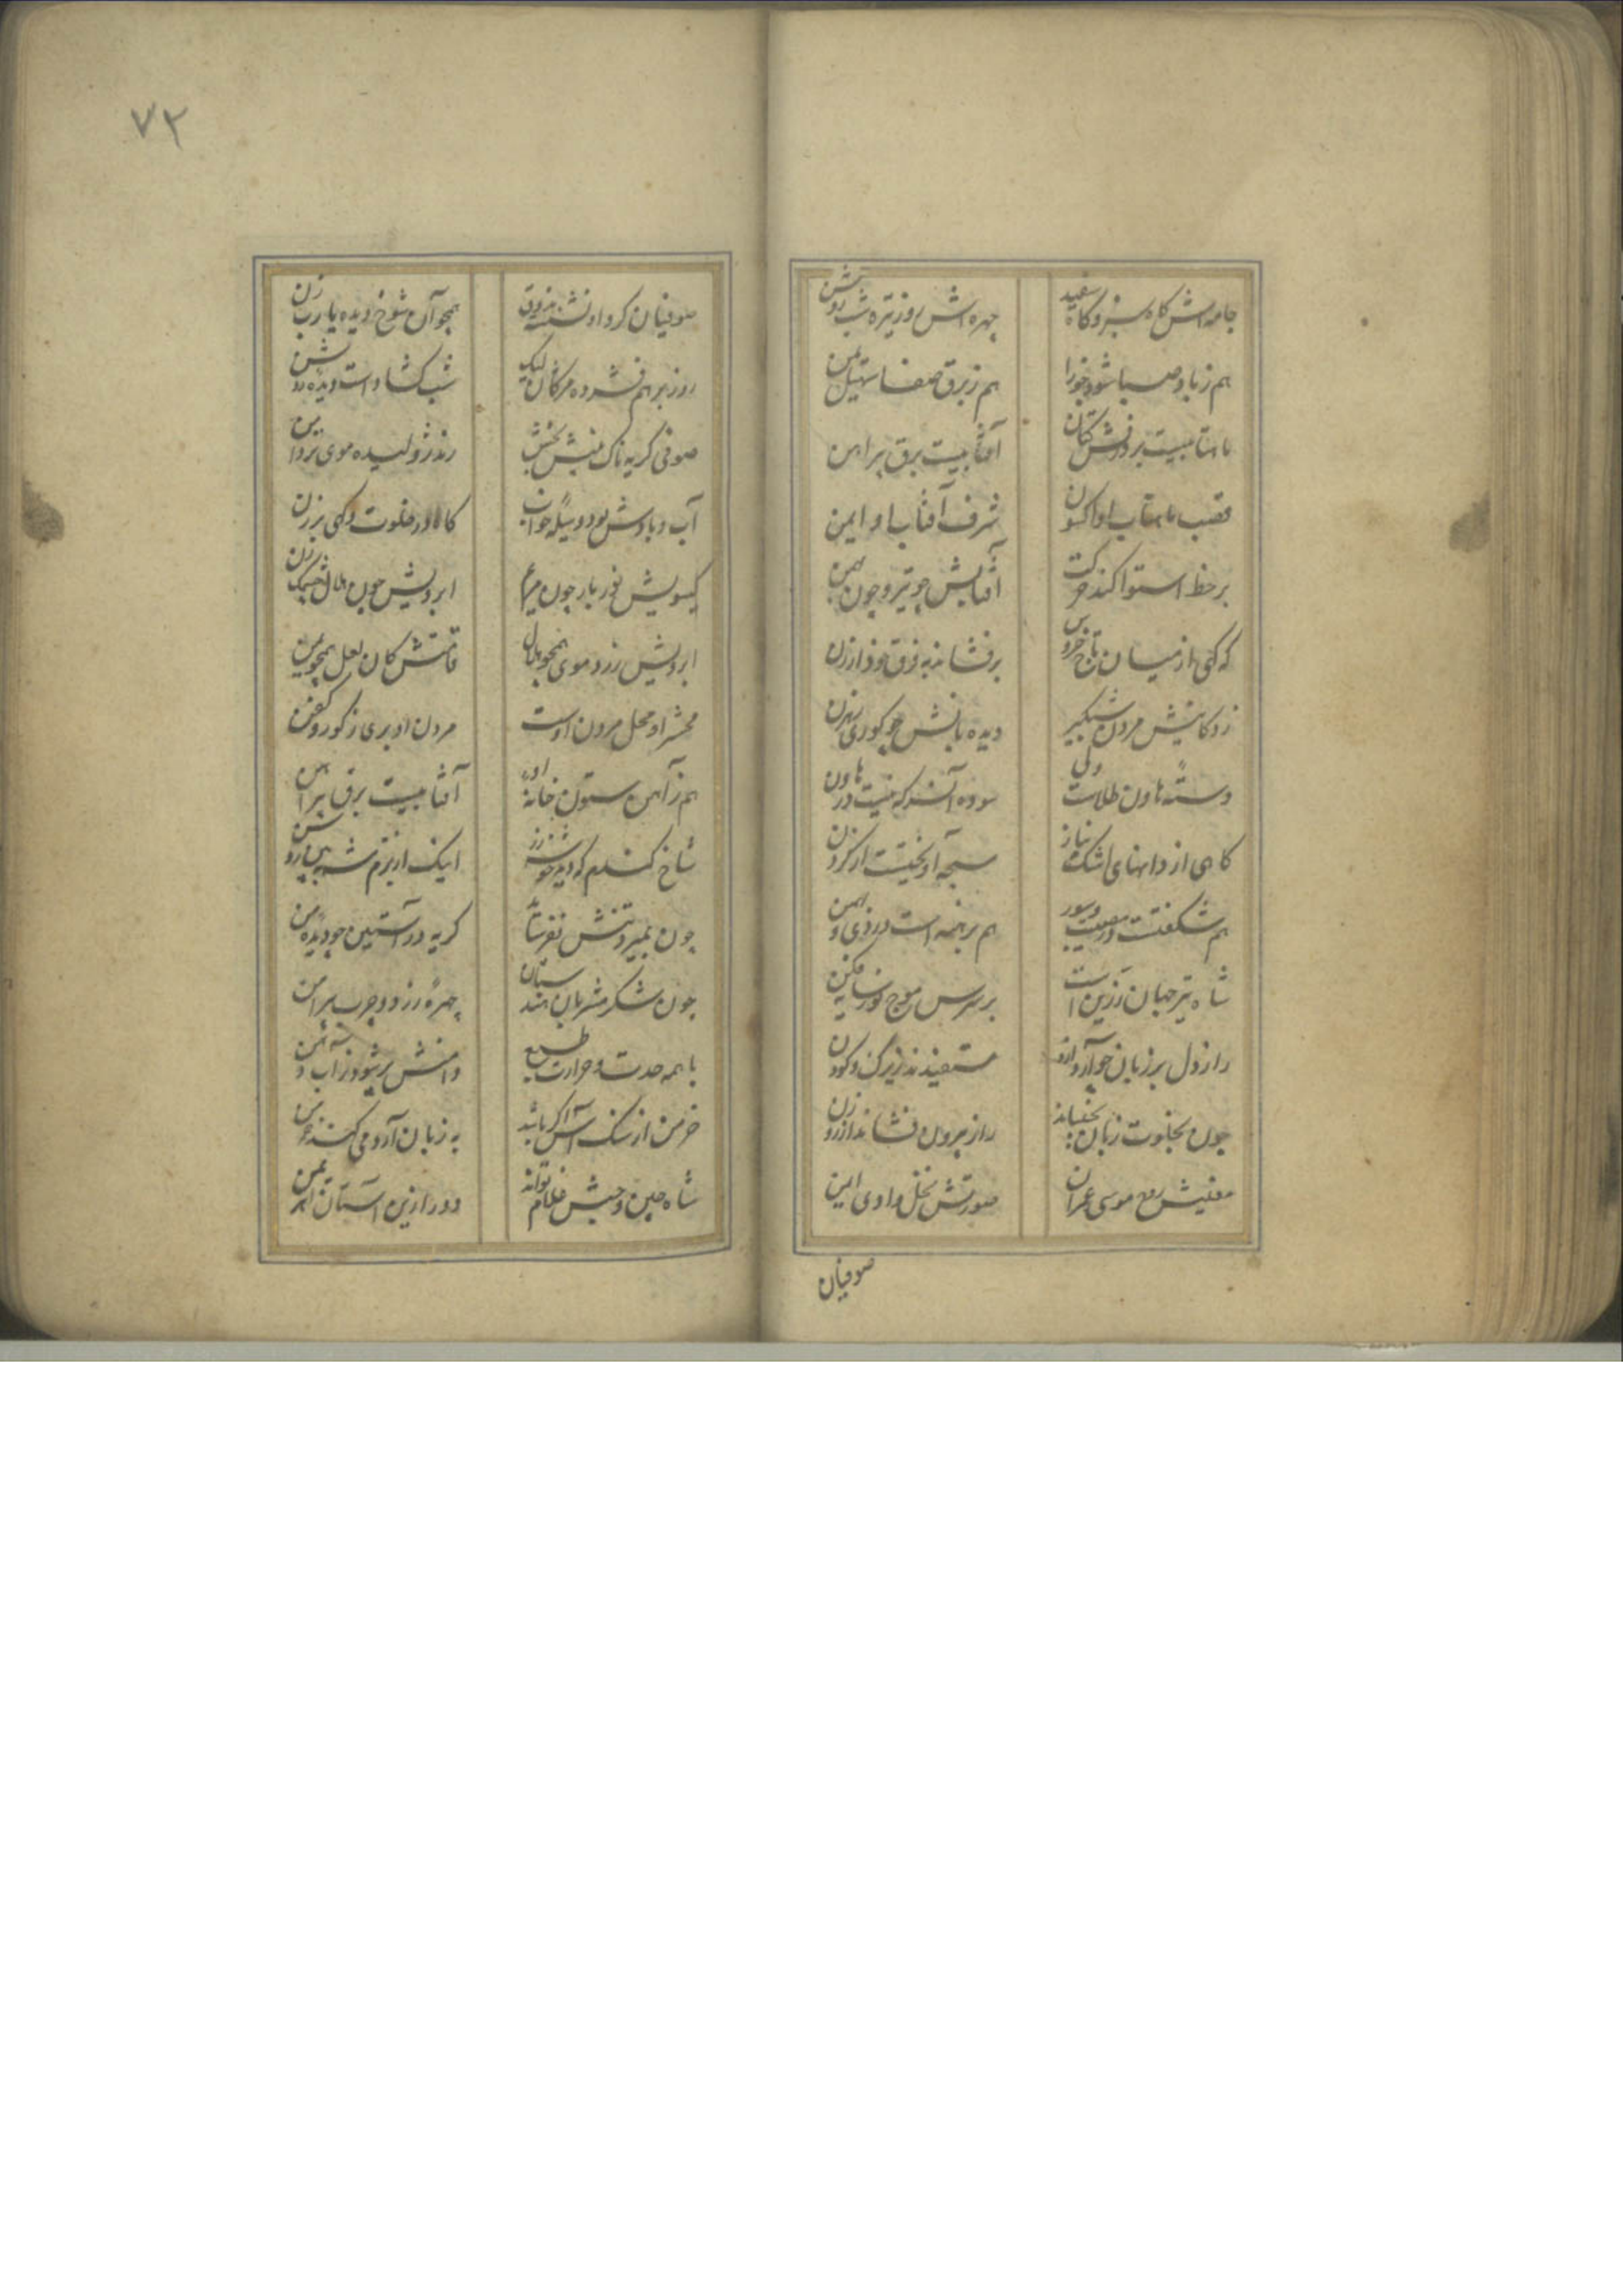 جامه اش گاه سبز و گاه سفید
چهره اش روز تیره شب روشن
هم ز باد صبا شود جوزا
هم ز برق صفا سهیل یمن
ماهتابیست بر درش کتان
آفتابیست برق پیراهن
قصب ماهتاب او اکسون
شرف آفتاب او ایمن
بر خط استوا کند حرکت
آفتابش چو تیر و چون بهمن
که گهی از میان تاج خروس
برفشاند به فرق او ارزن
زندگانیش مردن شبگیر
دیده بانش چو کوری رهزن
دسته هاون طلاست ولی
سوده آنسر که نیست در هاون
گاهی از دانهای اشک نیاز
سبحه آویختست از گردن
هم شگفتست در مصیبت و سور
هم برهنه است در دی و بهمن
شاه تیر جهان زرین است
بر سرش موج نور سایه فکن
راز دل بر زبان چو آرد ازو
مستفیدند زیرک و کودن
چون بخلوت زبان بجنباند
راز بیرون فشاند از روزن
معنیش رمح موسی عمران
صورتش نخل وادی ایمن
صوفیان
۷۲
صوفیان گرد او نشسته بذوق
همچو آن شوخ دیده یارب زن
روز بر هم فشرده مژگان لیک
شب گشاد است دیده روشن
صوفی گریه ناک بینش بخش
رند ژولیده موی تردامن
آب و بادش بود وسیله خواب
گاه در خلوت و گهی برزن
گیسویش نور بار چون مریم
ابرویش چون هلال چشمک زن
ابرویش زرد موی همچو هلال
قامتش کان لعل همچو یمن
محشر او محل مردن اوست
مردن او بری ز گور و کفن
هم ز آهن ستون خانه او
آفتابیست برق پیراهن
شاخ گندم که دید خوشه زر
اینک از بزم شه ببین روشن
چون بمیرد تنش نفرساید
گریه در آستین چو دیده من
چون شکر مشربان هندستان
چهره زرد و چرب پیراهن
با همه حدت و حرارت طبع
دامنش پر شود ز آب دهن
خرمن از سنگ آسیا گر باشد
به زبان آرد می کند خرمن
شاه چین و حبش غلام تواند
دور ازین آستان اهریمن